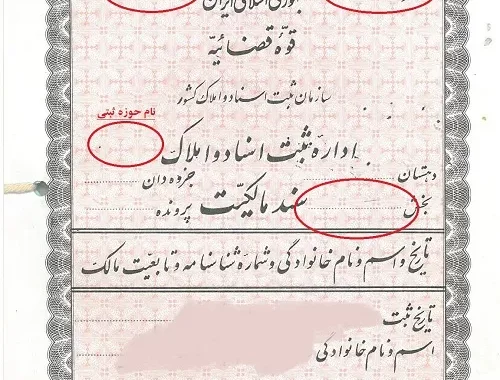 جمهوری اسلامی ایران
قوّه قضائیّه
سازمان ثبت اسناد و املاک کشور
نام حوزه ثبتی
اداره ثبت اسناد و املاک
دهستان
جزوه دان
بخش
سند مالکیّت پرونده
تاریخ و اسم و نام خانوادگی و شماره شناسنامه و تابعیّت مالک
تاریخ ثبت
اسم و نام خانوادگی